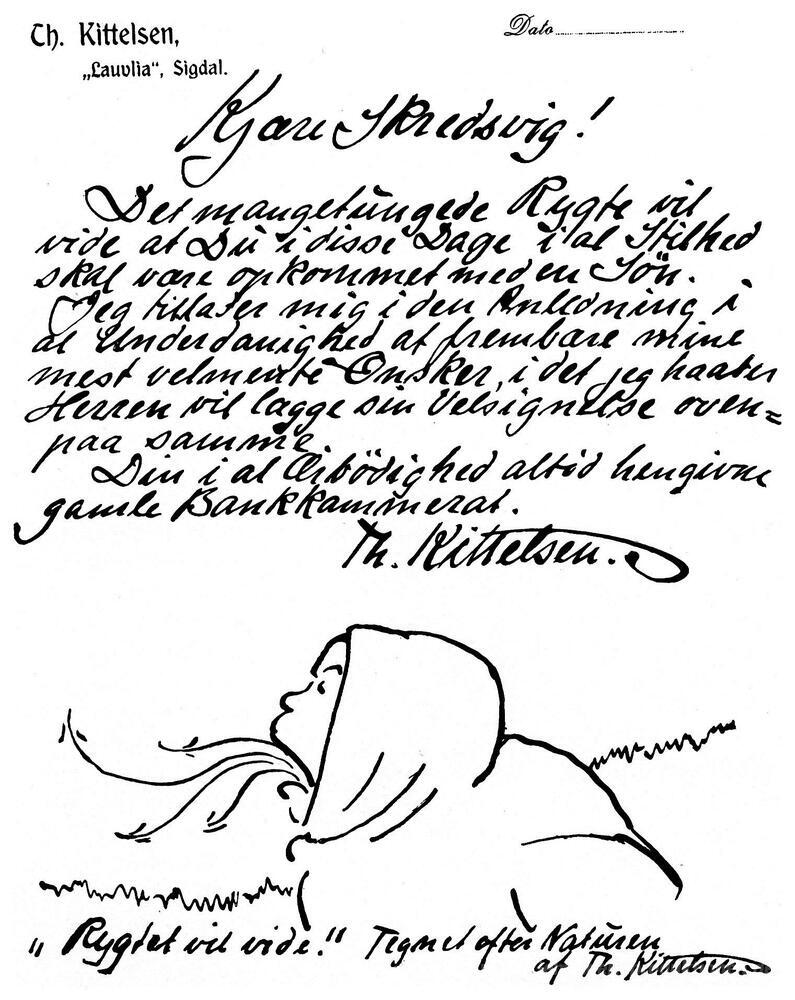 Th. Kittelsen,
„Lauvlia“, Sigdal.
Dato
Kjære Skredsvig!
Det mangetungede Rygte vil
vide at Du i disse Dage i al Stilhed
skal være opkommet med en Sön.
Jeg tillater mig i den Anledning i
al Underdanighed at frembære mine
mest velmente Ønsker, i det jeg haaber
Herren vil lægge sin Velsignelse oven=
paa samme.
Din i al Ærbödighed altid hengivne
gamle Bankkammerat.
Th. Kittelsen.
„Rygtet vil vide.“ Tegnet efter Naturen
af Th. Kittelsen.